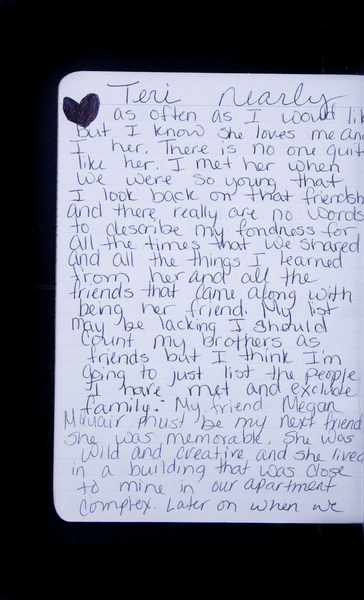 Teri nearly
as often as I would lik
but I know she loves me and
I her. There is no one quit
like her. I met her when
we were so young that
I look back on that friendsh
and there really are no words
to describe my fondness for
all the times that we shared
and all the things I learned
from her and all the
friends that came along with
being her friend. My list
may be lacking I should
count my brothers as
friends but I think I'm
going to just list the people
I have met and exclude
family. My friend Megan
must be my next friend
she was memorable. She was
wild and creative and she lived
in a building that was close
to mine in our apartment
complex. Later on when we